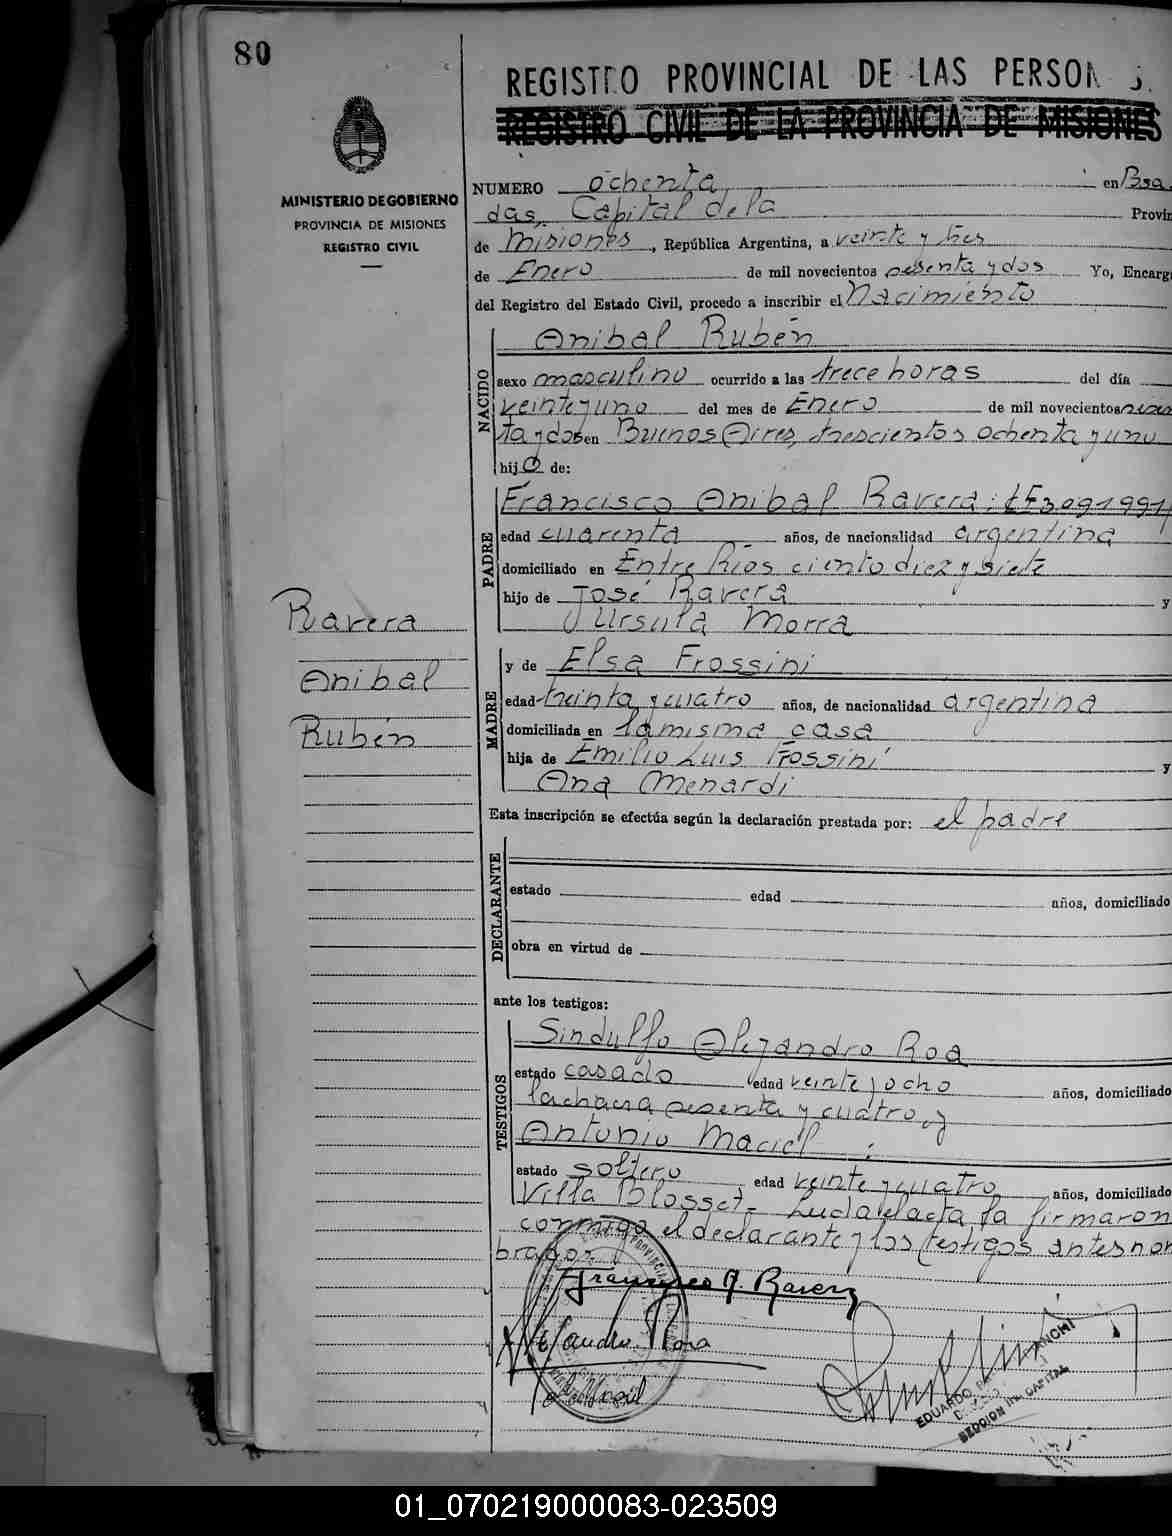 80
REGISTRO PROVINCIAL DE LAS PERSON S.
REGISTRO CIVIL DE LA PROVINCIA DE MISIONES
MINISTERIO DE GOBIERNO
PROVINCIA DE MISIONES
REGISTRO CIVIL
NUMERO ochenta en Posa
das, Capital de la Provin
de Misiones, República Argentina, a veinte y tres
de Enero de mil novecientos sesenta y dos Yo, Encarg
del Registro del Estado Civil, procedo a inscribir el Nacimiento
NACIDO
Anibal Rubén
sexo masculino ocurrido a las trece horas del día
veinte y uno del mes de Enero de mil novecientos sesen
ta y dos en Buenos Aires, trescientos ochenta y uno
hijo de:
PADRE
Francisco Anibal Ravera: LE3091991
edad cuarenta años, de nacionalidad argentina
domiciliado en Entre Ríos ciento diez y siete
hijo de José Ravera y
Ursula Morra
Ravera
Anibal
Rubén
MADRE
y de Elsa Frossini
edad treinta y cuatro años, de nacionalidad argentina
domiciliada en la misma casa
hija de Emilio Luis Frossini y
Ana Menardi
Esta inscripción se efectúa según la declaración prestada por: el padre
DECLARANTE
estado edad años, domiciliado
obra en virtud de
ante los testigos:
TESTIGOS
Sindulfo Alejandro Roa
estado casado edad veinte y ocho años, domiciliado
Lachacra sesenta y cuatro, y
Antonio Maciel
estado soltero edad veinte y cuatro años, domiciliado
Villa Blosset- Leída el acta la firmaron
conmigo el declarante y los testigos antes nom
brados.
Francisco A. Ravera
Alejandro Roa
EDUARDO
SECCION 1ra. CAPITAL
01_070219000083-023509